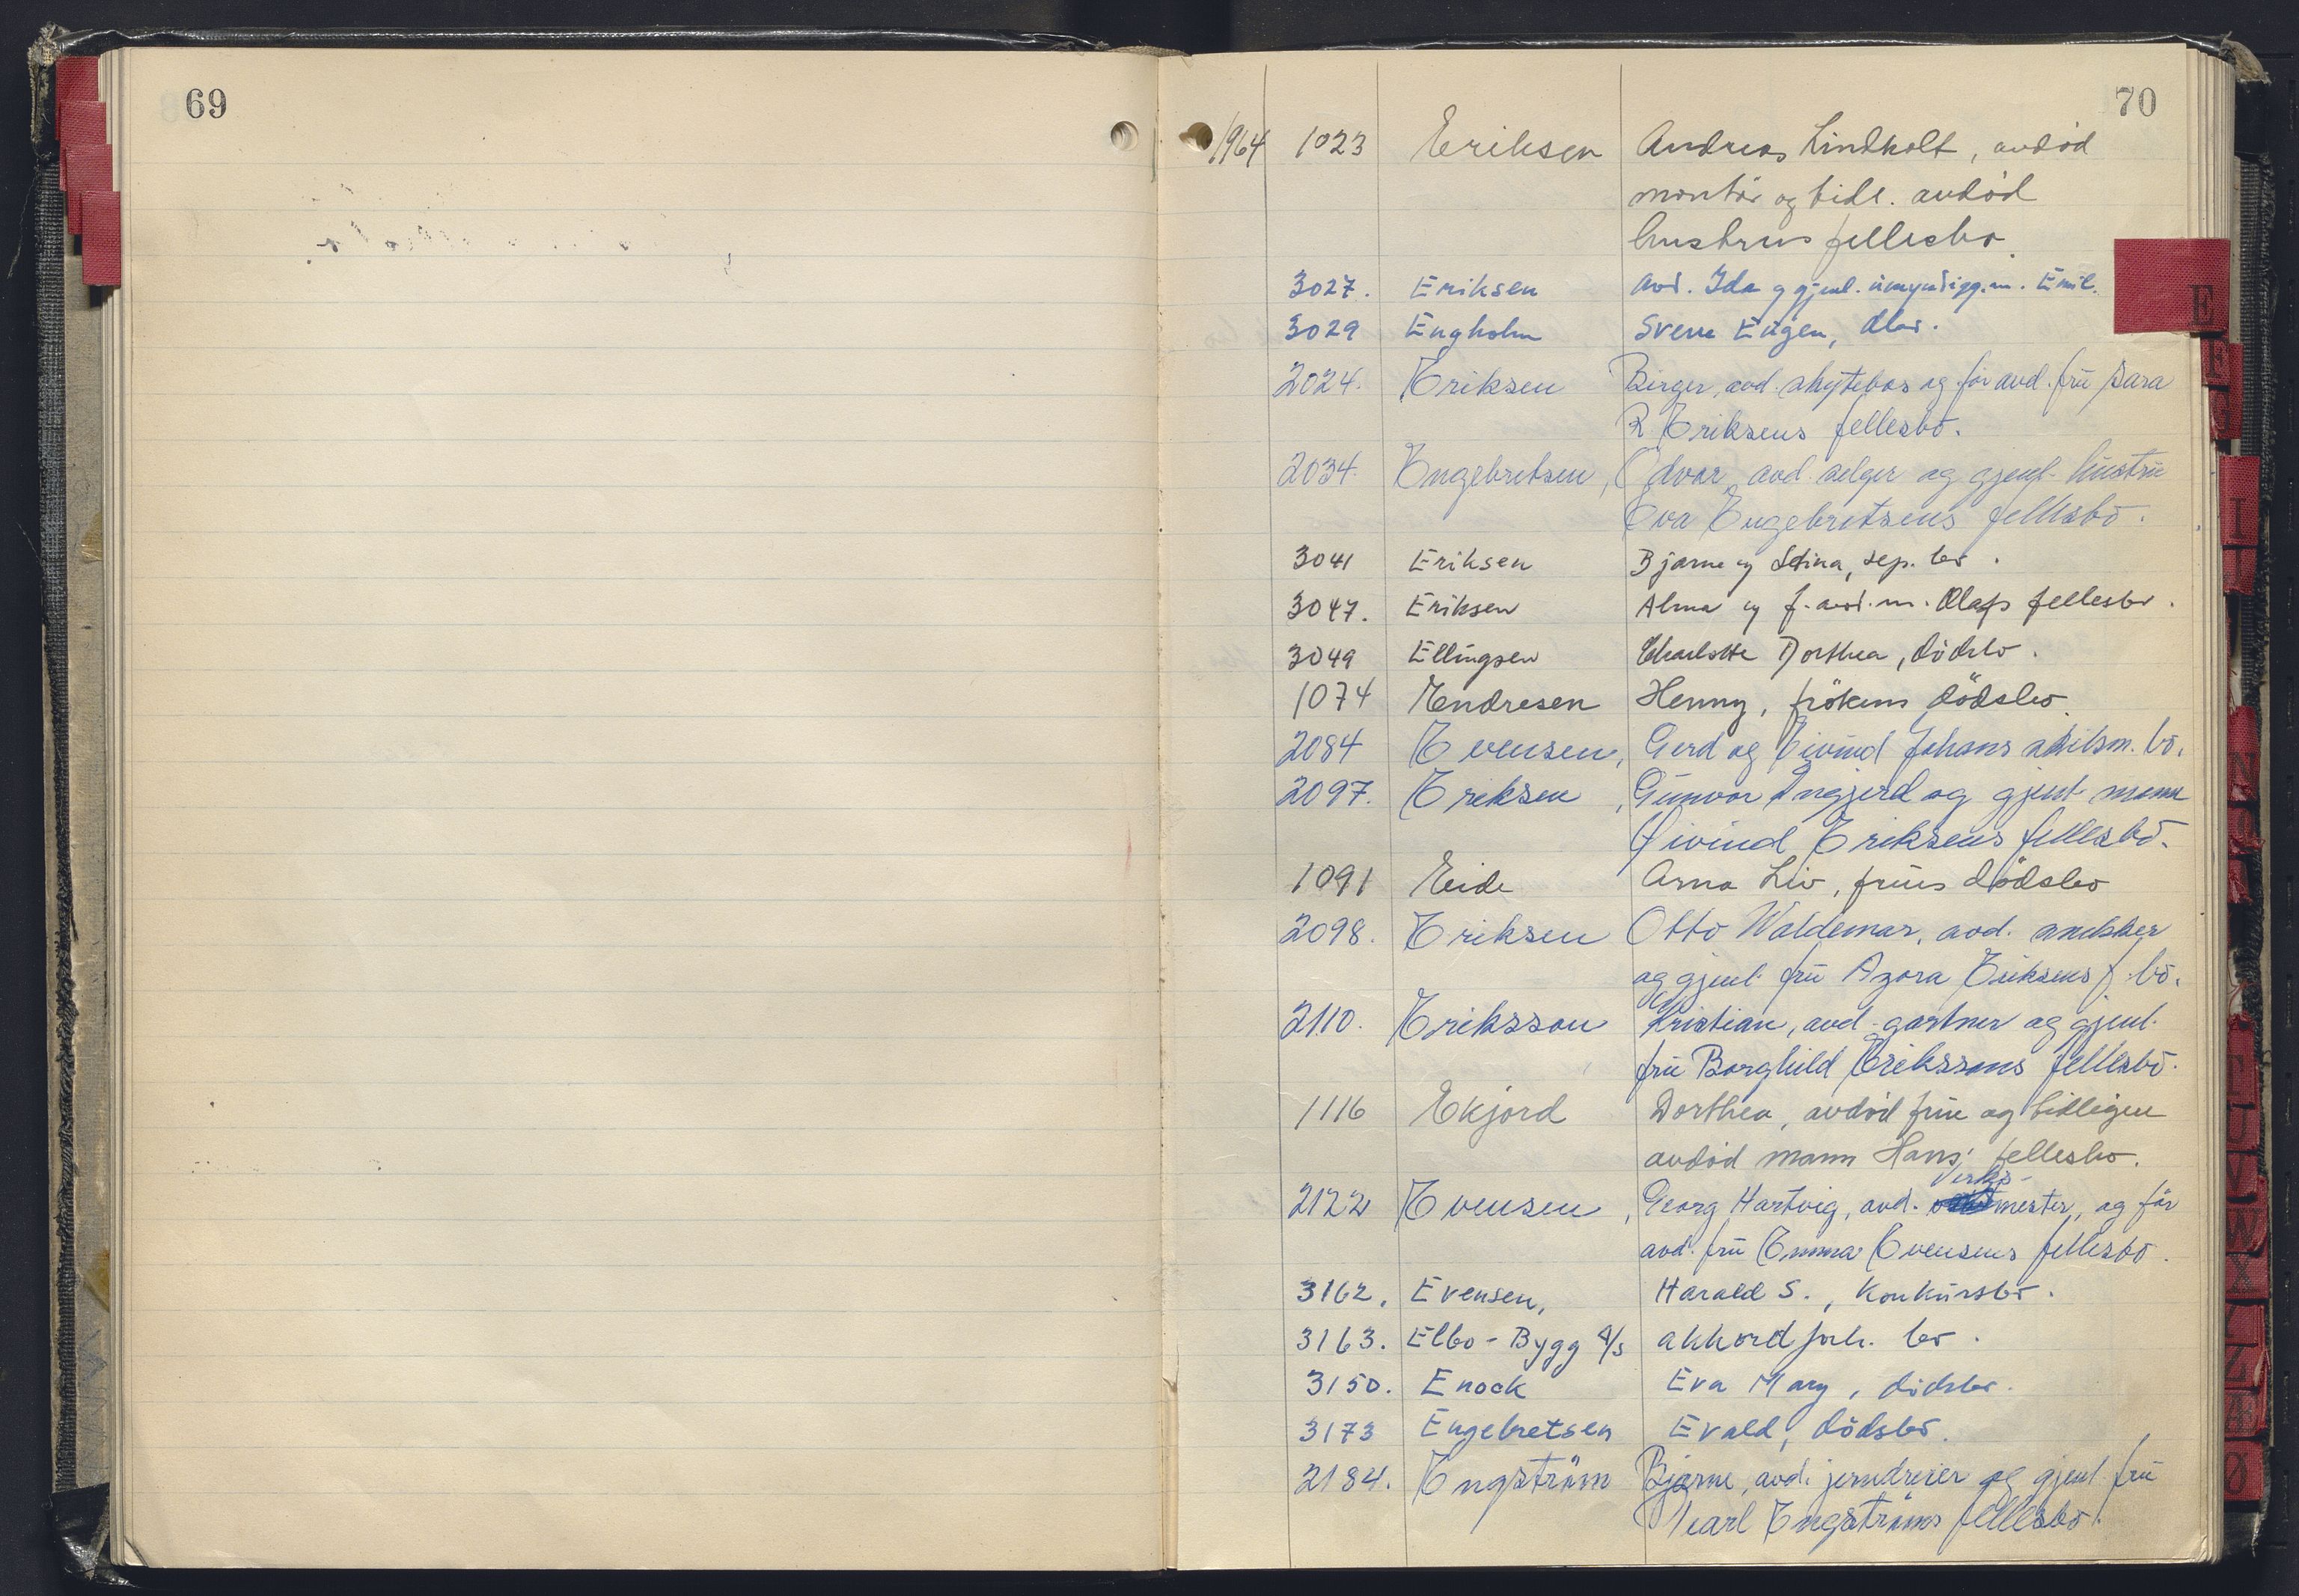 69
70
1964 1023 Eriksen Andreas Lindholt, avdød
montør og tidl. avdød
hustrus fellesbo.
3027. Eriksen avd. Ida og gjenl. umyndiggj. m. Emil.
3029 Engholm Sverre Eugen, dbo.
2024. Eriksen Birger, avd. og før avd. frü Sara
R Eriksens fellesbo.
2034. Engebretsen, Odvar, avd. selger og gjenl. hüstrü
Eva Engebretsens fellesbo.
3041 Eriksen Bjarne og Stina, sep. bo.
3047. Eriksen Alma og f. avd. m. Olafs fellesbo.
3049 Ellingsen Charlotte Dorthea, dödsbo.
1074 Endresen Henny, frökens dödsbo.
2084 Evensen, Gerd og Eivind Johans skilsm. bo.
2097. Eriksen, Günvor Ingjerd og gjenl. mann
Øivind Eriksens fellesbo.
1091 Eide Arna Liv, früs dödsbo
2098. Eriksen Otto Waldemar, avd. snekker
og gjenl. frü Azora Eriksens f. bo.
2110. Eriksson Kristian, avd. gartner og gjenl.
frü Borghild Erikssons fellesbo.
1116 Ekjord Dorthea, avdød frue og tidligere
avdød mann Hans' fellesbo.
Verks-
2122 Evensen, Georg Hartvig, avd. mester, og før
avd. frü Emma Evensens fellesbo.
3162. Evensen, Harald S., Konkursbo.
3163. Elbo-Bygg A/s akkordforh. bo.
3150. Enock Eva Mary, dödsbo.
3173 Engebretsen Evald, dödsbo.
2184. Engström Bjarne, avd. jerndreier og gjenl. frü
Pearl Engströms fellesbo.
E
F
I
N
W
X
Z
Ø